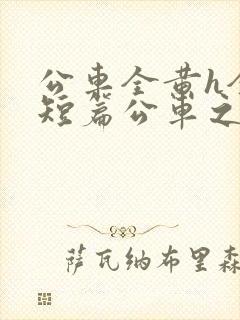 公車全黄h全
短篇公車之
萨瓦纳布里森